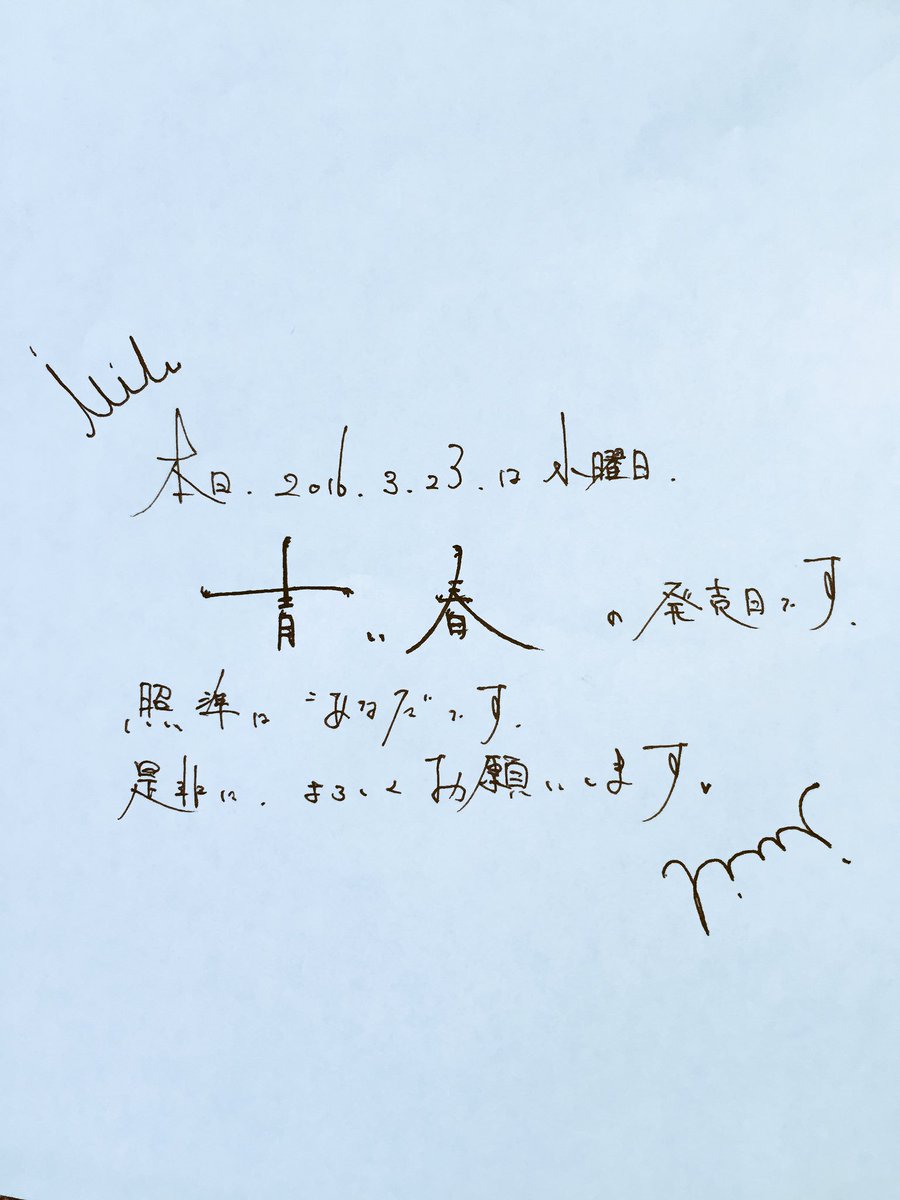 本日.2016.3.23.は水曜日.
青い春の発売日です.
照準は"あなた"です.
是非に.よろしくお願いします.